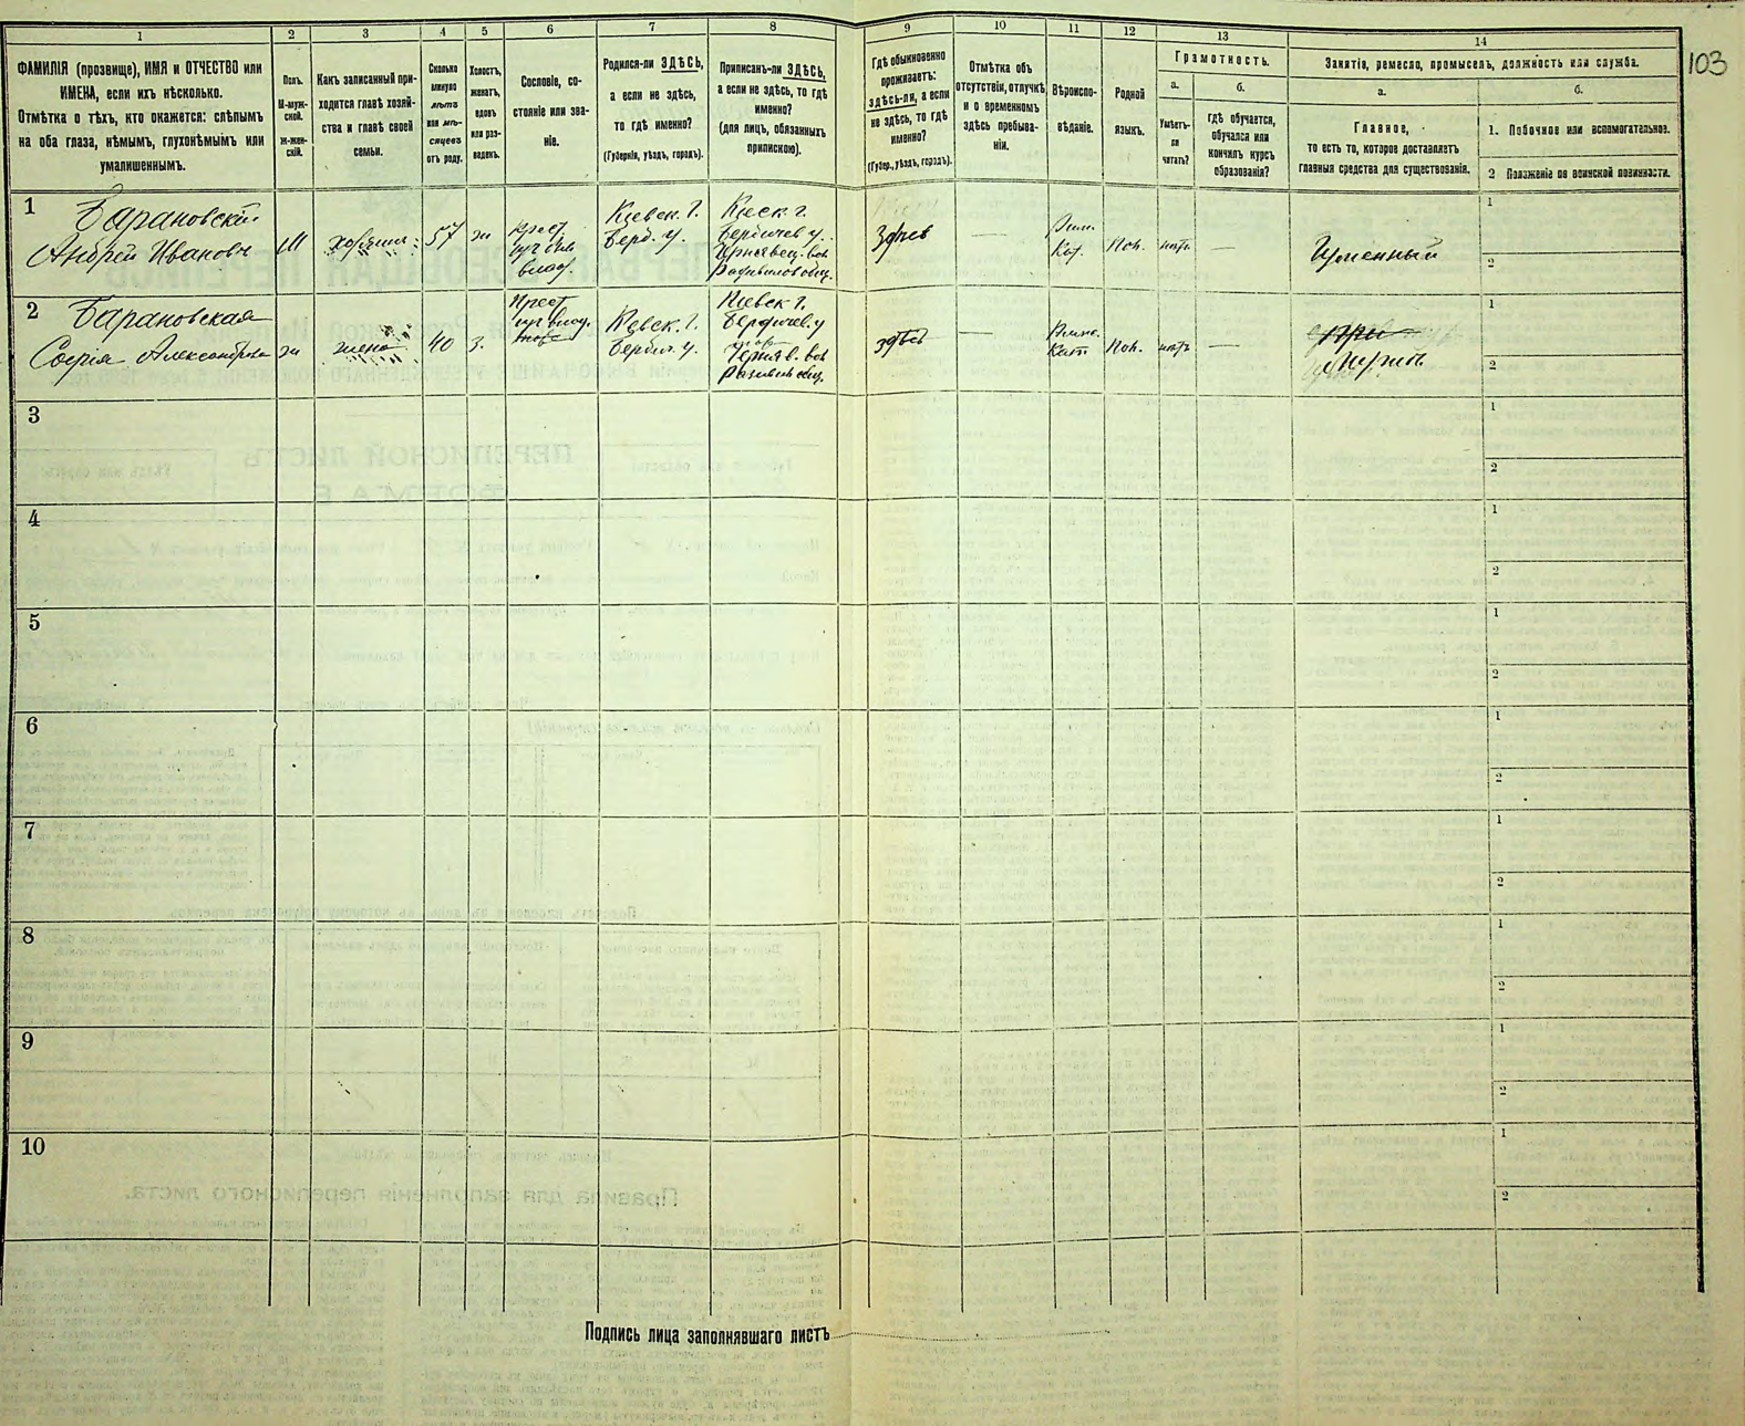 103
1
2
3
4
5
6
7
8
9
10
11
12
13
14
ФАМИЛІЯ (прозвище), ИМЯ и ОТЧЕСТВО или
ИМЕНА, если ихъ нѣсколько.
Отмѣтка о тѣхъ, кто окажется: слѣпымъ
на оба глаза, нѣмымъ, глухонѣмымъ или
умалишеннымъ.
Полъ.
М-муж-
ской.
Ж-жен-
скій.
Какъ записанный при-
ходится главѣ хозяй-
ства и главѣ своей
семьи.
Сколько
минуло
лѣтъ
или мѣ-
сяцевъ
отъ роду.
Холостъ,
женатъ,
вдовъ
или раз-
веденъ.
Сословіе, со-
стояніе или зва-
ніе.
Родился-ли ЗДѢСЬ,
а если не здѣсь,
то гдѣ именно?
(Губернія, уѣздъ, городъ).
Приписанъ-ли ЗДѢСЬ,
а если не здѣсь, то гдѣ
именно?
(для лицъ, обязанныхъ
припискою).
Гдѣ обыкновенно
проживаетъ:
здѣсь-ли, а если
не здѣсь, то гдѣ
именно?
(Губер., уѣздъ, городъ).
Отмѣтка объ
отсутствіи, отлучкѣ
и о временномъ
здѣсь пребыва-
ніи.
Вѣроиспо-
вѣданіе.
Родной
языкъ.
Грамотность.
а.
Умѣетъ-
ли
читать?
б.
гдѣ обучается,
обучался или
кончилъ курсъ
образованія?
Занятія, ремесло, промыселъ, должность или служба.
а.
Главное,
то есть то, которое доставляетъ
главныя средства для существованія.
б.
1. Побочное или вспомогательное.
2 Положеніе по воинской повинности.
1
Барановскій
Андрей Ивановъ
М
хозяинъ
57
ж
Крест.
Кіевск. г.
Берд. у.
Бердичев у.
Здѣсь
—
Рим.
Кат.
Пол.
нѣтъ
—
1
2
2
Барановская
Софія Александрова
ж
жена
40
з.
Крест.
Кіевск. г.
Бердич. у.
Кіевск г.
Бердичев. у
здѣсь
—
Римс.
Кат.
Пол.
нѣтъ
—
1
2
3
1
2
4
1
2
5
1
2
6
1
2
7
1
2
8
1
2
9
1
2
10
1
2
Подпись лица заполнявшаго листъ